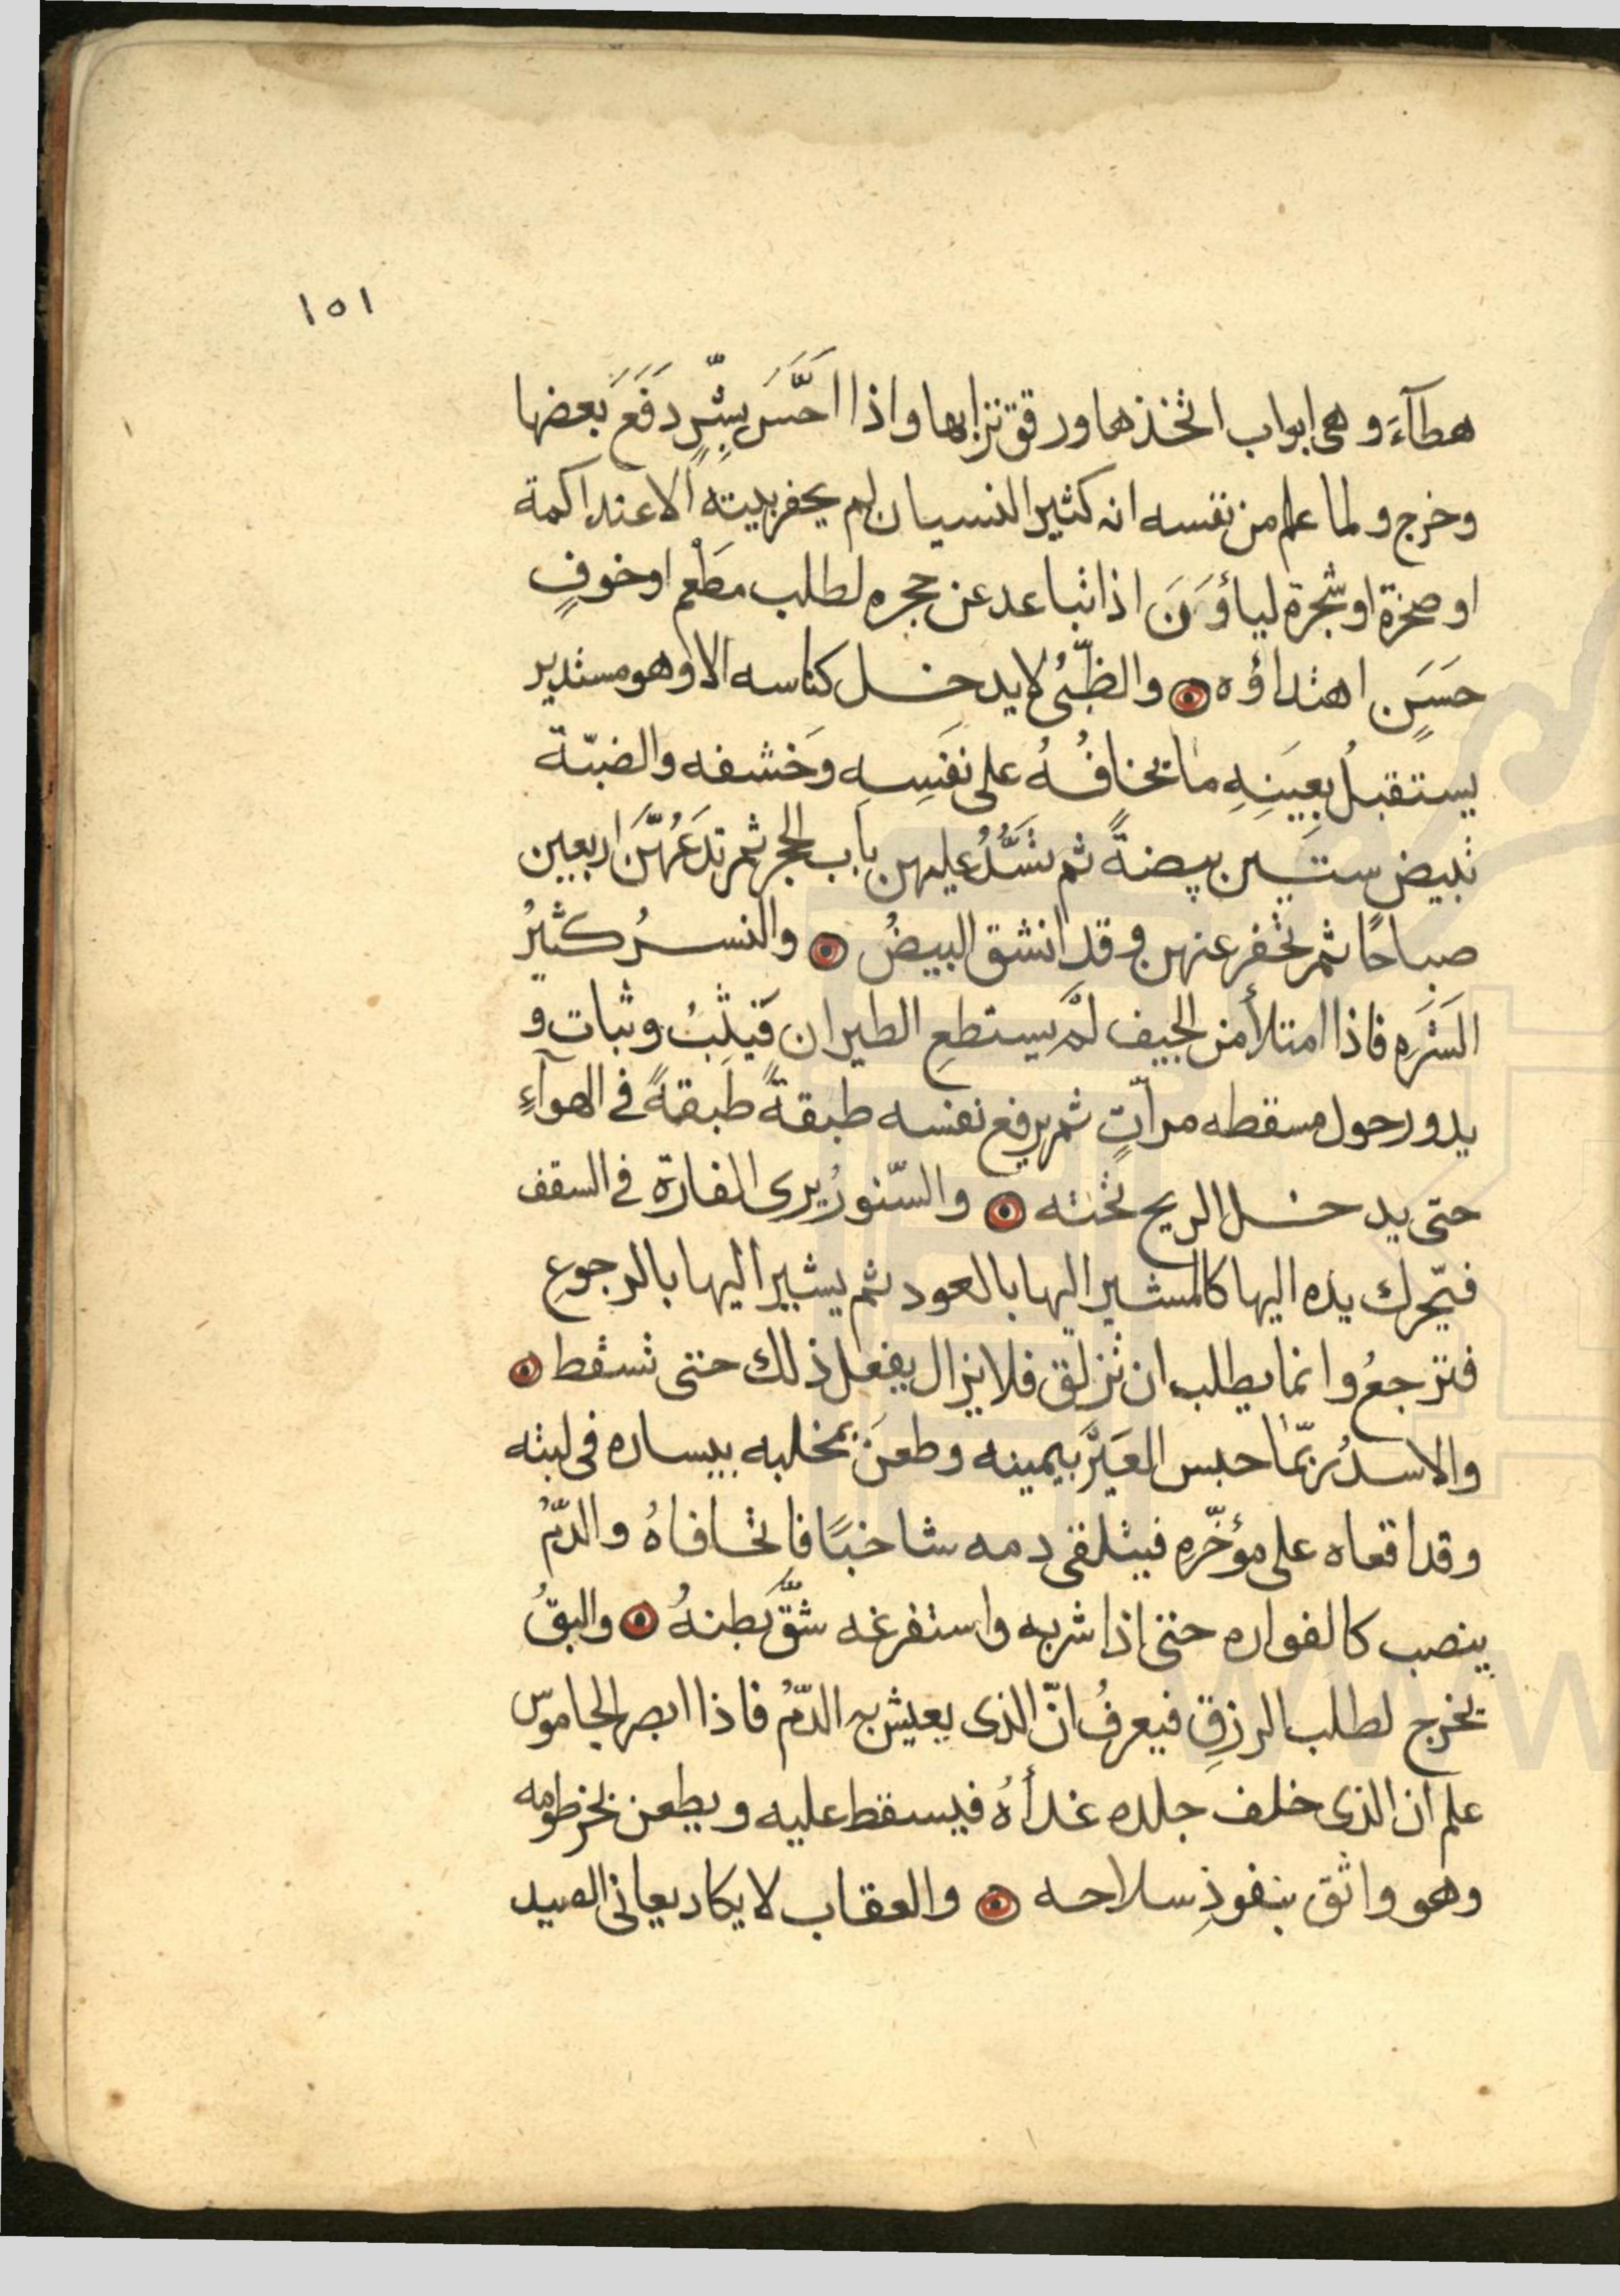 ١٥١
هطآءَ وهى ابواب اتخذها ورقق ترابها واذا احَّسَ بِشّرٍ دَفَعَ بَعضها
وخرج ولما علم من نفسه انه كثير النسيان لم يحفر بيته الا عند اكمة
او صخرة او شجرة ليأؤَنَ اذا تباعد عن حجره لطلب مطْعم او خوفٍ
حَسَنٍ اهتداؤه ۞ والظّبىُ لا يدخل كناسه الا وهو مستدير
يستقبلُ بعينِهِ ما يخافُهُ على نَفَسِهِ وخشفه والضبّة
تبيض ستين بيضةً ثم تسَّدُ عليهن باب الحجر ثم تدَعُهَّن اربعين
صباحًا ثم تحفر عنهن وقد انشق البيضُ ۞ والنسرُ كثيرُ
الشَرَهِ فاذا امتلأ من الجيف لم يستطعِ الطيران فَيثِبُ وثبات و
يدور حول مسقطه مرآتٍ ثم يرفع نفسه طبقةً طَبقةً فى الهوآءِ
حتى يدخل الريح تحته ۞ والسّنورُ يرى الفارة فى السقف
فيّحرك يده اليها كالمشير اليها بالعود ثم يشير اليها بالرجوعِ
فترجعُ وانما يطلب ان تزلق فلا يزال يفعل ذلك حتى تسقط ۞
والاسدُ ربّما حبس العَيْر بيمينه وطعنَ بمخلبه بيساره فى لبته
وقد اقعاه على مؤخّرِه فيتلقى دمه شاخبًا فاتحًا فاهُ والدّمُ
ينصب كالفواره حتى اذا شربه واستفرغه شقَّ بَطنهُ ۞ والبقُ
يخرج لطلب الرزقِ فيعرفُ انّ الذى يعيش به الدّمُ فاذا ابصر الجاموس
علم ان الذى خلف جلده غدأهُ فيسقط عليه ويطعن بخرطومه
وهو واثق بنفوذِ سلاحه ۞ والعقاب لا يكاد يعانى الصيد